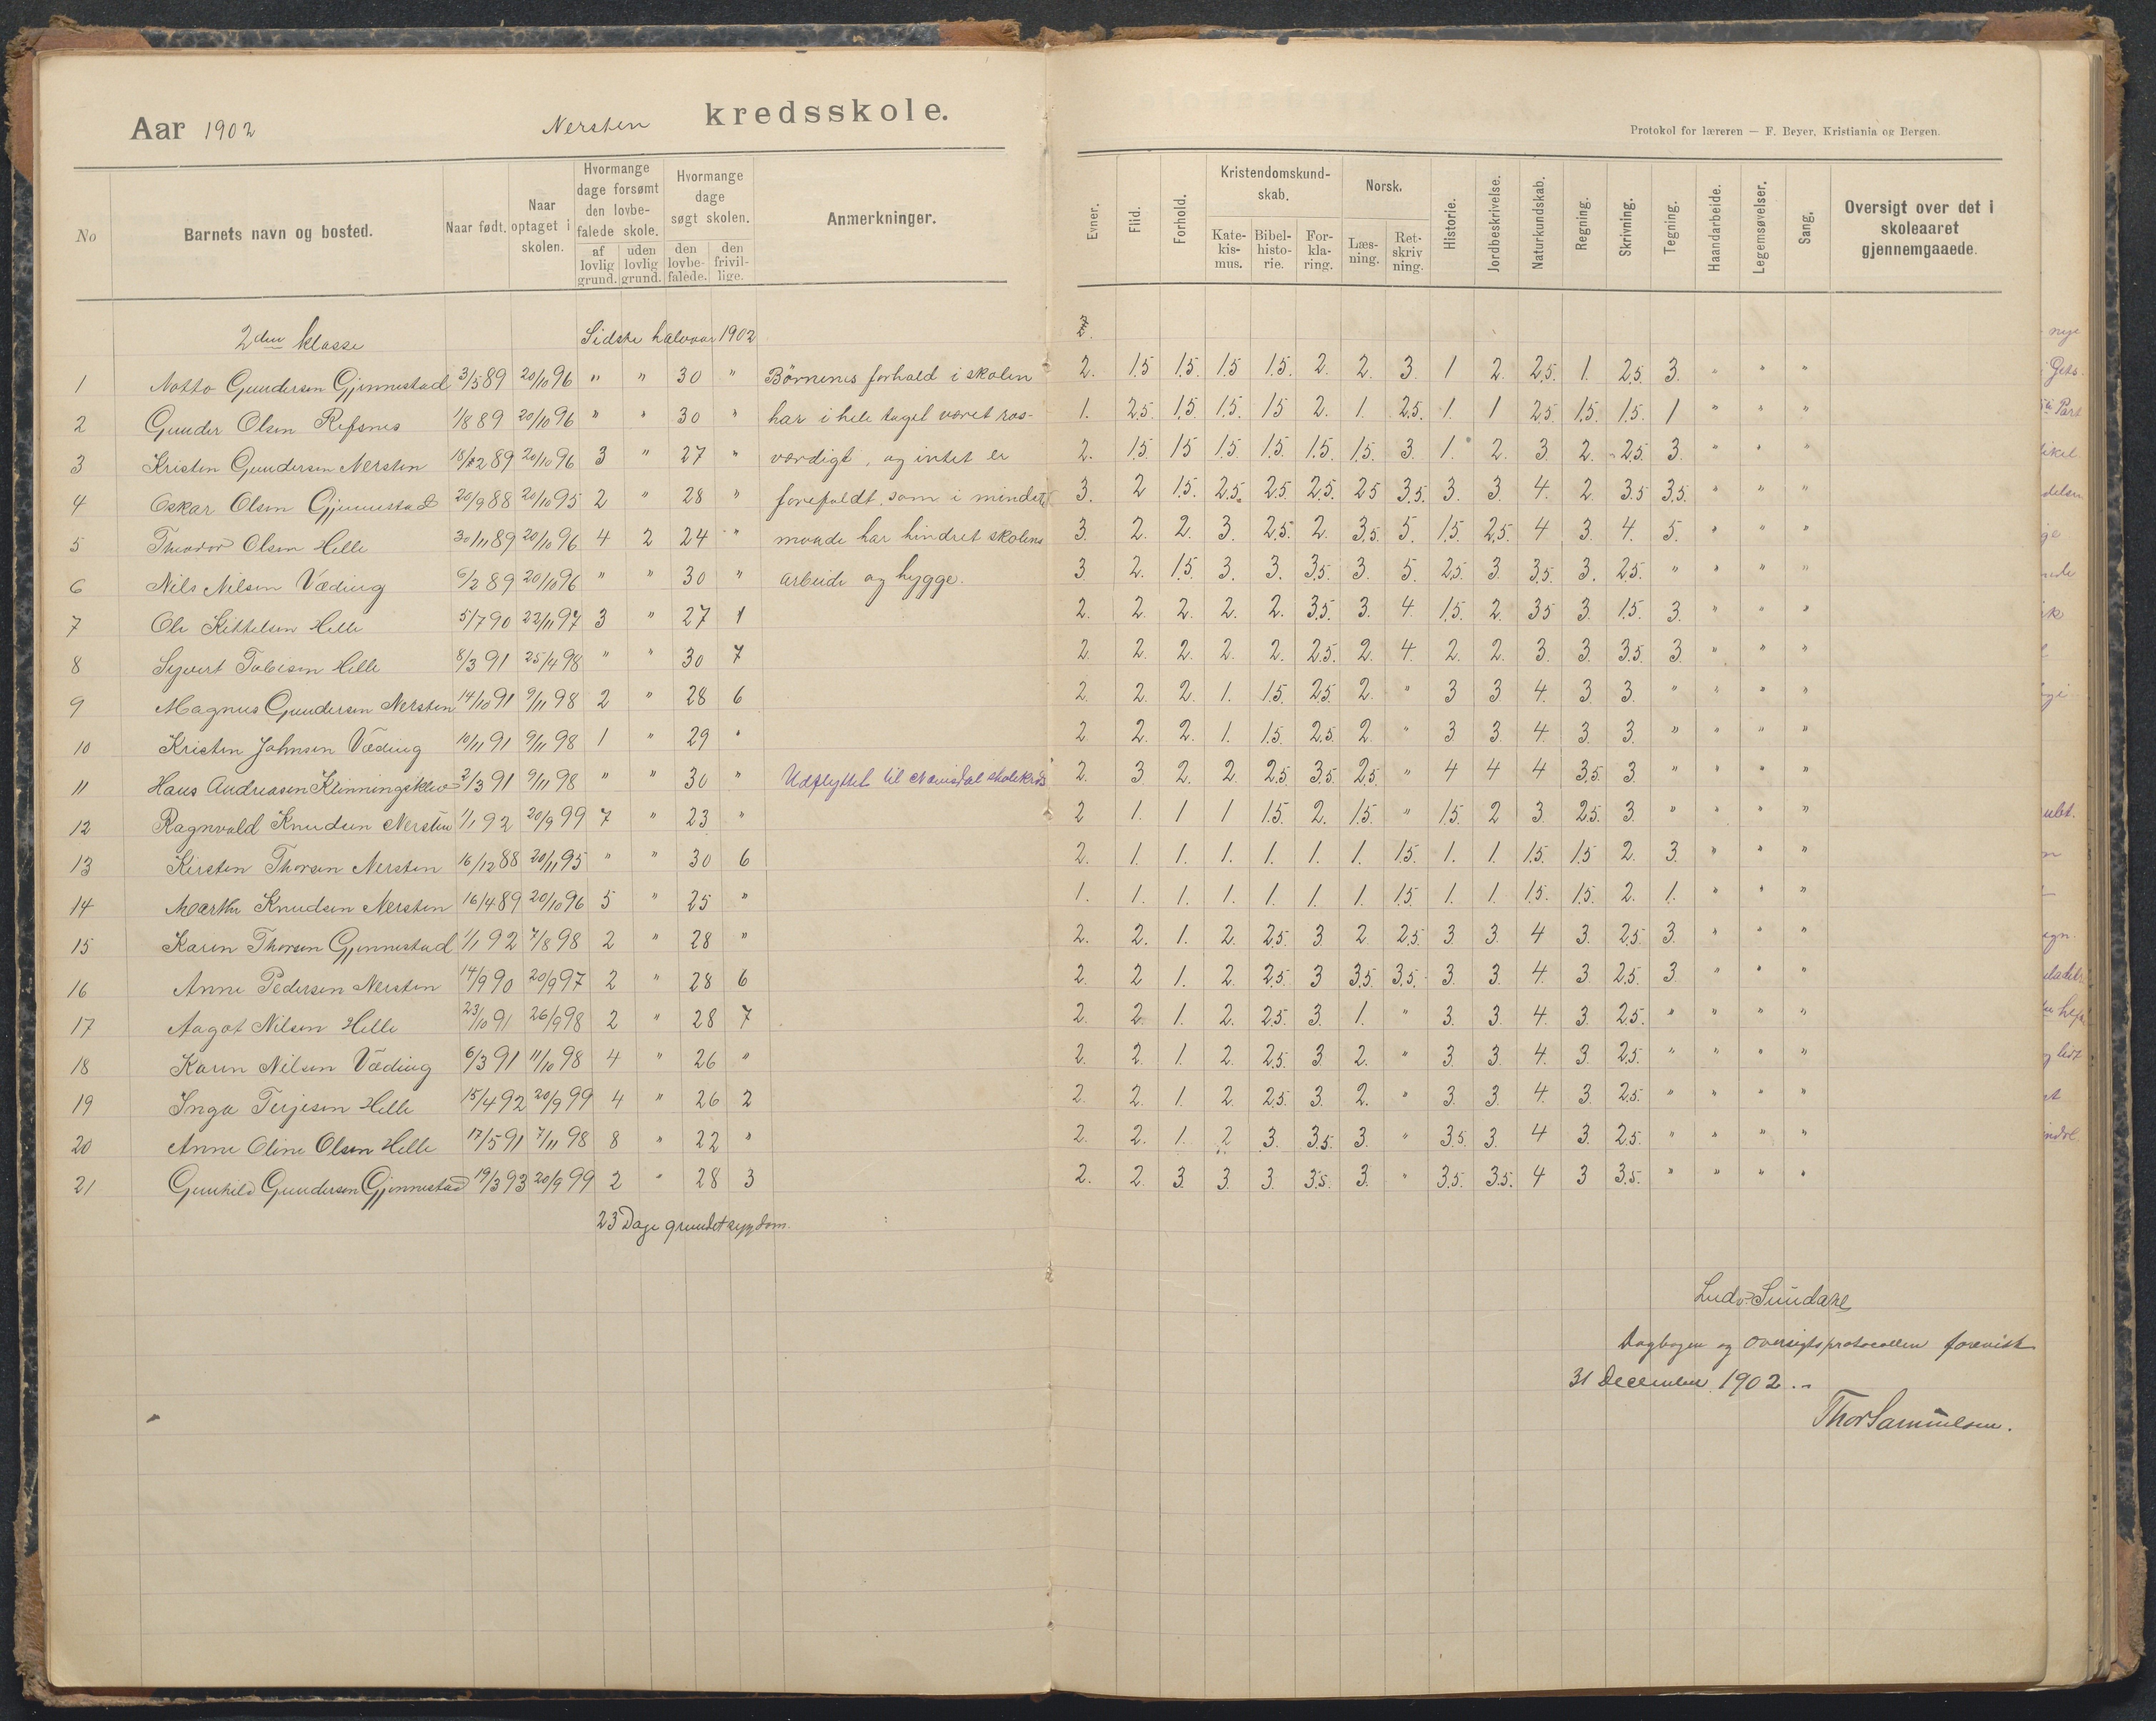 Aar 1902 Nersten kredsskole.
Protokol for læreren — F. Beyer, Kristiania og Bergen.
No | Barnets navn og bosted. | Naar født. | Naar optaget i skolen. | Hvormange dage forsømt den lovbefalede skole. af lovlig grund. | uden lovlig grund. | Hvormange dage søgt skolen. den lovbefalede. | den frivillige. | Anmerkninger. | Evner. | Flid. | Forhold. | Kristendomskundskab. Katekismus. | Bibelhistorie. | Forklaring. | Norsk. Læsning. | Retskrivning. | Historie. | Jordbeskrivelse. | Naturkundskab. | Regning. | Skrivning. | Tegning. | Haandarbeide. | Legemsøvelser. | Sang. | Oversigt over det i skoleaaret gjennemgaaede.
2den klasse Sidste halvaar 1902
1 Notto Gundersen Gjennestad 3/5 89 20/10 96 " " 30 " Børnenes forhold i skolen 2. 1.5 1.5. 1.5 1.5. 2. 2. 3. 1 2. 2.5. 1. 2.5. 3. " " "
2 Gunder Olsen Refsnes 1/8 89 20/10 96 " " 30 " har i hele taget været ros- 1. 2.5. 1.5. 1.5. 1.5 2. 1. 2.5. 1. 1 2.5 1.5. 1.5. 1 " " "
3 Kristen Gundersen Nersten 18/12 89 20/10 96 3 " 27 " værdigt, og intet er 2. 1.5 1.5 1.5. 1.5. 1.5. 1.5. 3. 1. 2. 3. 2. 2.5. 3. " " "
4 Oskar Olsen Gjennestad 20/9 88 20/10 95 2 " 28 " forefaldt som i mindste 3. 2 1.5. 2.5. 2.5 2.5. 2.5 3.5. 3. 3. 4. 2. 3.5 3.5. " " "
5 Theodor Olsen Helle 30/11 89 20/10 96 4 2 24 " maade har hindret skolens 3. 2. 2. 3. 2.5. 2. 3.5. 5. 1.5. 2.5. 4 3. 4. 5. " " "
6 Nils Nilsen Væding 6/2 89 20/10 96 " " 30 " arbeide og hygge. 3 2. 1.5. 3. 3. 3.5. 3. 5. 2.5. 3. 3.5. 3. 2.5. " " " "
7 Ole Kittelsen Helle 5/7 90 22/11 97 3 " 27 1 2. 2. 2. 2. 2. 3.5. 3. 4. 1.5. 2. 3.5 3. 1.5. 3. " " "
8 Syvert Tobiesen Helle 8/3 91 25/4 98 " " 30 7 2. 2. 2. 2. 2. 2.5. 2. 4. 2. 2. 3. 3. 3.5. 3. " " "
9 Magnus Gundersen Nersten 14/10 91 9/11 98 2 " 28 6 2. 2. 2. 1. 1.5. 2.5 2. " 3 3 4. 3 3. " " " "
10 Kristen Johnsen Væding 10/11 91 9/11 98 1 " 29 " 2. 2. 2. 1. 1.5. 2.5. 2. " 3 3. 4. 3. 3. " " " "
11 Hans Andreasen Klinningsklev 2/3 91 9/11 98 " " 30 " Udflyttet til skolekreds 2. 3 2. 2. 2.5 3.5. 2.5. " 4 4 4 3.5. 3. " " " "
12 Ragnvald Knudsen Nersten 1/1 92 20/9 99 7 " 23 " 2 1. 1 1 1.5. 2. 1.5. " 1.5. 2 3. 2.5. 3. " " " "
13 Kirsten Thorsen Nersten 16/12 88 20/11 95 " " 30 6 2. 1. 1. 1. 1. 1. 1. 1.5. 1. 1. 1.5. 1.5 2. 3. " " "
14 Marthe Knudsen Nersten 16/4 89 20/10 96 5 " 25 " 1. 1. 1. 1. 1. 1. 1. 1.5. 1. 1. 1.5. 1.5. 2. 1. " " "
15 Karen Thorsen Gjennestad 1/1 92 7/8 98 2 " 28 " 2. 2. 1. 2. 2.5. 3 2. 2.5. 3. 3. 4 3. 2.5. 3. " " "
16 Anne Pedersen Nersten 14/9 90 20/9 97 2 " 28 6 2. 2 1. 2. 2.5. 3 3.5. 3.5. 3 3. 4. 3 2.5. 3 " " "
17 Aagot Nilsen Helle 23/10 91 26/9 98 2 " 28 7 2. 2. 1. 2. 2.5. 3. 1. " 3. 3. 4. 3. 2.5. " " " "
18 Karen Nilsen Væding 6/3 91 11/10 98 4 " 26 " 2. 2. 1. 2. 2.5. 3 2. " 3. 3. 4. 3. 2.5. " " " "
19 Inga Terjesen Helle 15/4 92 20/9 99 4 " 26 2 2. 2. 1. 2. 2.5. 3. 2. " 3. 3. 4. 3. 2.5. " " " "
20 Anne Oline Olsen Helle 17/5 91 7/11 98 8 " 22 " 2. 2. 1. 2 3. 3.5. 3. " 3.5. 3. 4 3. 2.5. " " " "
21 Gunhild Gundersen Gjennestad 19/3 93 20/9 99 2 " 28 3 2. 2. 3. 3. 3. 3.5. 3. " 3.5. 3.5. 4 3 3.5. " " " "
23 Dage grundet sygdom.
Ludv. Sundahl
Dagbogen og oversigtsprotocollen forevist
31 December 1902.
Thor Samuelsen.